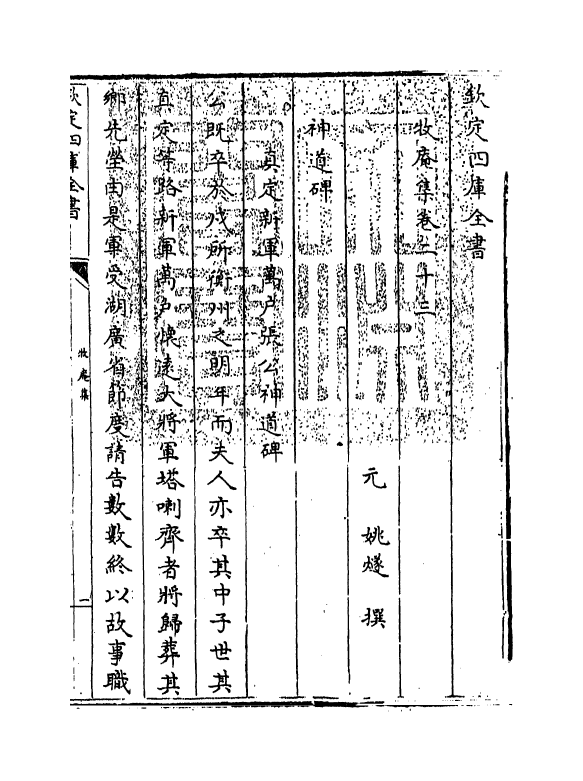 欽定四庫全書
牧庵集卷二十三
元 姚燧 撰
神道碑
真定新軍萬户張公神道碑
公既卒於戍所衡州之明年而夫人亦卒其中子世其
真定等路新軍萬户懷遠大將軍塔喇齊者將歸葬其
鄉先塋由是軍受湖廣省節度請告數數終以故事職
欽定四庫全書
牧庵集
一